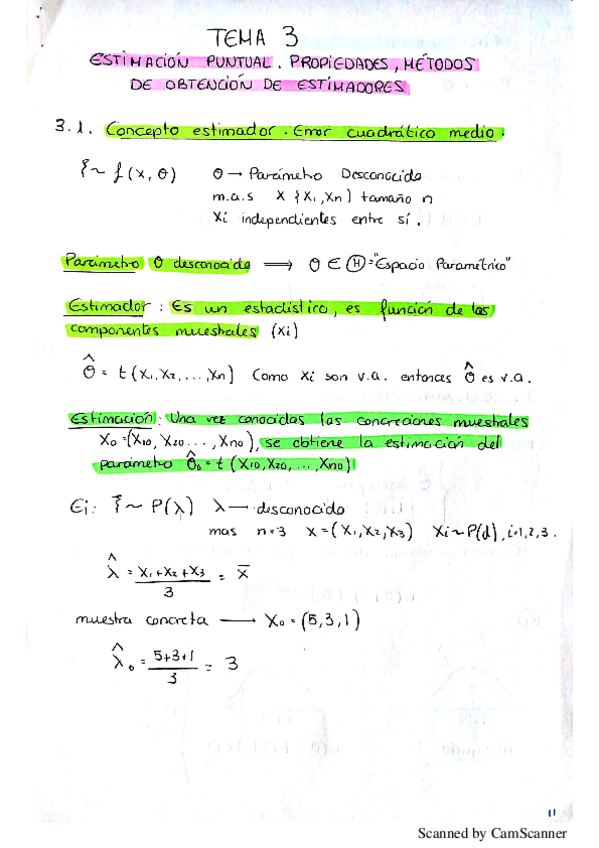 TEMA 3
ESTIMACIÓN PUNTUAL. PROPIEDADES, MÉTODOS
DE OBTENCIÓN DE ESTIMADORES
3.1. Concepto estimador. Error cuadrático medio.
ξ ~ f(x, θ) θ → Parámetro Desconocido
m.a.s X {X1, Xn) tamaño n
Xi independientes entre sí.
Parámetro θ desconocido ⟹ θ ∈ Ⓗ = "Espacio Paramétrico"
Estimador: Es un estadístico, es función de las
componentes muestrales (Xi)
θ̂ = t(X1, X2, ..., Xn) Como Xi son v.a. entonces θ̂ es v.a.
Estimación: Una vez conocidas las concreciones muestrales
X0 = (X10, X20 ..., Xn0), se obtiene la estimación del
parámetro θ̂0 = t(X10, X20, ..., Xn0)
Ej: ξ ~ P(λ) λ → desconocido
mas n=3 X = (X1, X2, X3) Xi ~ P(d), i=1,2,3.
λ̂ = X1+X2+X3 / 3 = X̄
muestra concreta → X0 = (5,3,1)
λ̂0 = 5+3+1 / 3 = 3
Scanned by CamScanner